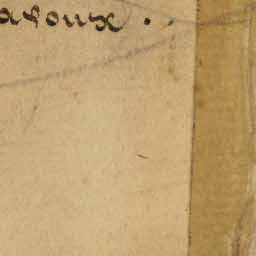 asoux ..